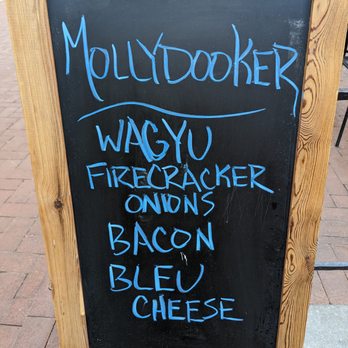 MOLLYDOOKER
WAGYU
FIRECRACKER
ONIONS
BACON
BLEU
CHEESE